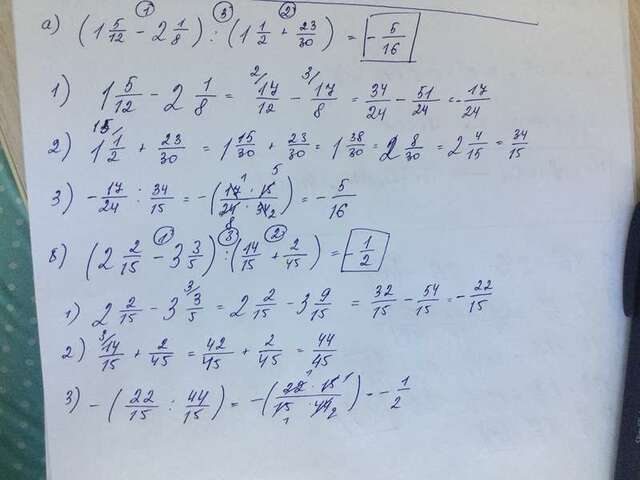 а) (1 5/12 - 2 1/8) : (1 1/2 + 23/30) = -5/16
1) 1 5/12 - 2 1/8 = 17/12 - 17/8 = 34/24 - 51/24 = -17/24
2) 1 1/2 + 23/30 = 1 15/30 + 23/30 = 1 38/30 = 2 8/30 = 2 4/15 = 34/15
3) -17/24 : 34/15 = -(17 · 15 / 24 · 34) = -5/16
в) (2 2/15 - 3 3/5) : (14/15 + 2/45) = -1/2
1) 2 2/15 - 3 3/5 = 2 2/15 - 3 9/15 = 32/15 - 54/15 = -22/15
2) 14/15 + 2/45 = 42/45 + 2/45 = 44/45
3) -(22/15 : 44/15) = -(22 · 15 / 15 · 44) = -1/2